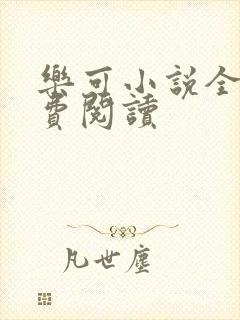 樂可小説全
費閱讀
凡世塵